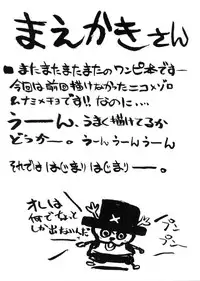 まえがきさん
■またまたまたまたのワンピ本です—
今回は前回描けなかったニコ×ゾロ
&ナミ×チョです!!なのに…
うーん、うまく描けてるか
どうかー。うーんうーんうーん
それでははじまりはじまりー。
オレは
何でちょっと
しか出ないんだ
プンプン